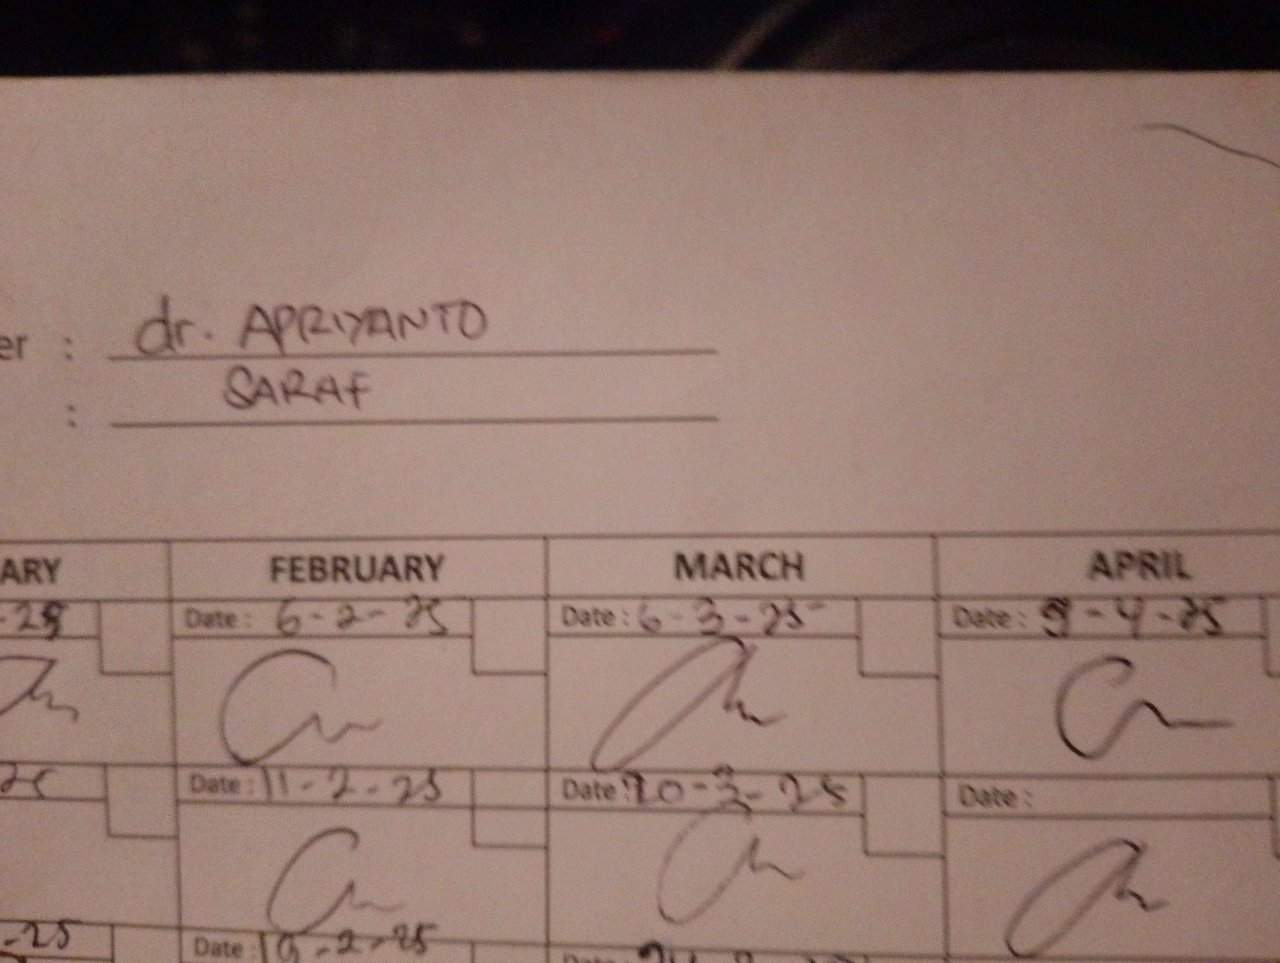 er : dr. APRIYANTO
: SARAF
ARY FEBRUARY MARCH APRIL
-25 Date : 6-2-25 Date : 6-3-25 Date : 9-4-25
25 Date : 11-2-25 Date : 10-3-25 Date :
-25 Date : 19-2-25